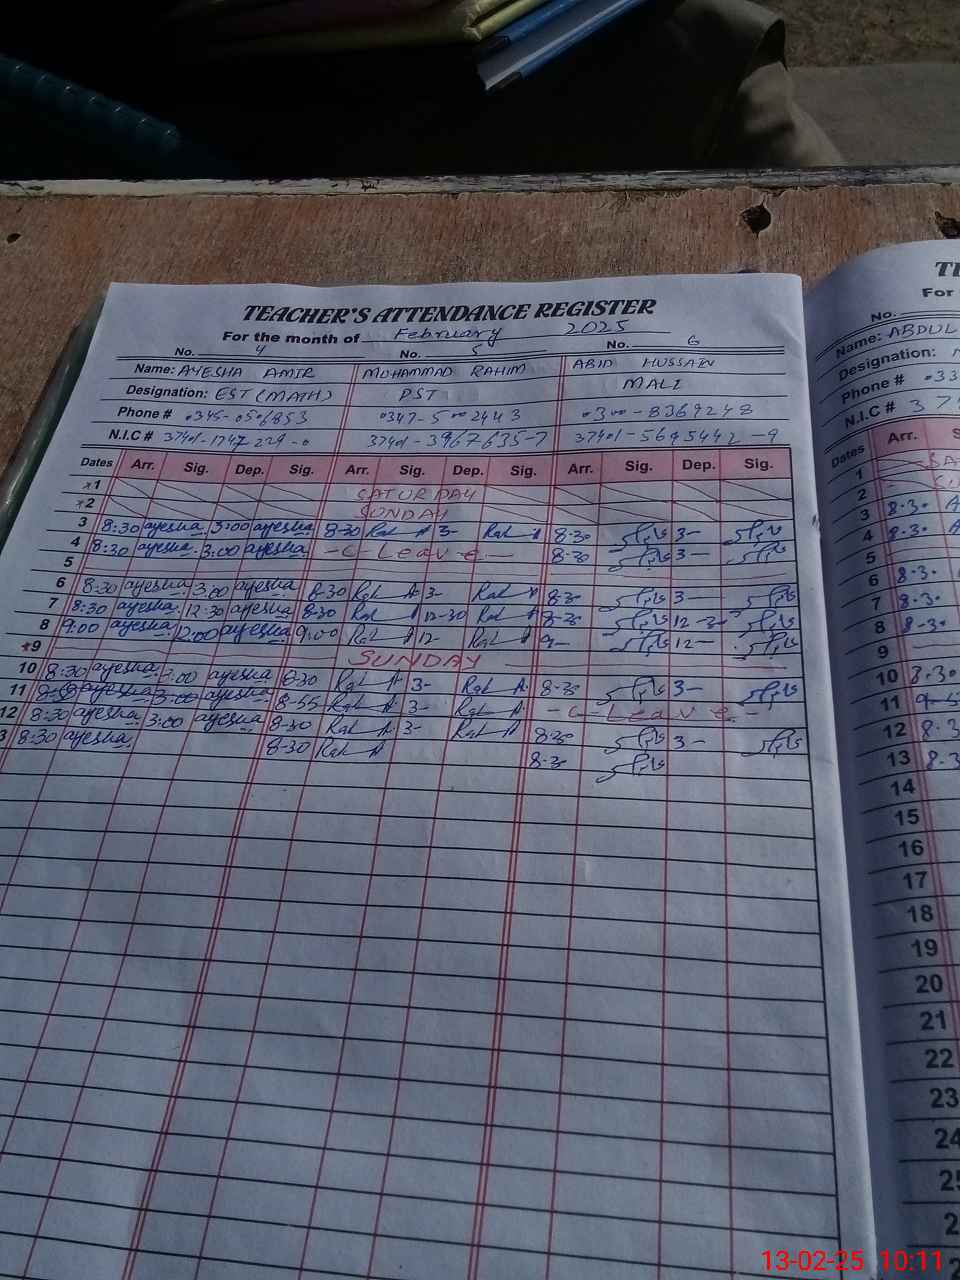 TEACHER'S ATTENDANCE REGISTER
For the month of February 2025
No. 4 No. 5 No. 6
Name: AYESHA AMIR MUHAMMAD RAHIM ABID HUSSAIN
Designation: EST (MATH) PST MALI
Phone # 0345-0506853 0347-5002443 0300-8369248
N.I.C # 37401-1747229-0 37401-3967635-7 37401-5695442-9
Dates Arr. Sig. Dep. Sig. Arr. Sig. Dep. Sig. Arr. Sig. Dep. Sig.
×1 SATURDAY
×2 SUNDAY
3 8:30 ayesha 3:00 ayesha 8-30 3- 8-30 3-
4 8:30 ayesha 3:00 ayesha -C-Leave- 8-30 3-
5
6 8:30 ayesha 3:00 ayesha 8-30 3- 8-30 3-
7 8:30 ayesha 12:30 ayesha 8-30 12-30 8-30 12-30
8 9:00 ayesha 12:00 ayesha 9-00 12- 9- 12-
×9 SUNDAY
10 8:30 ayesha 3:00 ayesha 8-30 3- 8-30 3-
11 ayesha 3:00 ayesha 8-55 3- -C-Leave-
12 8:30 ayesha 3:00 ayesha 8-30 3- 8-30 3-
3 8:30 ayesha 8-30 8-30
For
No.
Name: ABDUL
Designation:
Phone # 033
N.I.C # 37
Dates Arr.
1
2
3 8-30
4 8-30
5
6 8-30
7 8-30
8 8-30
9
10 8-30
11
12 8-3
13 8-3
14
15
16
17
18
19
20
21
22
23
24
25
13-02-25 10:11